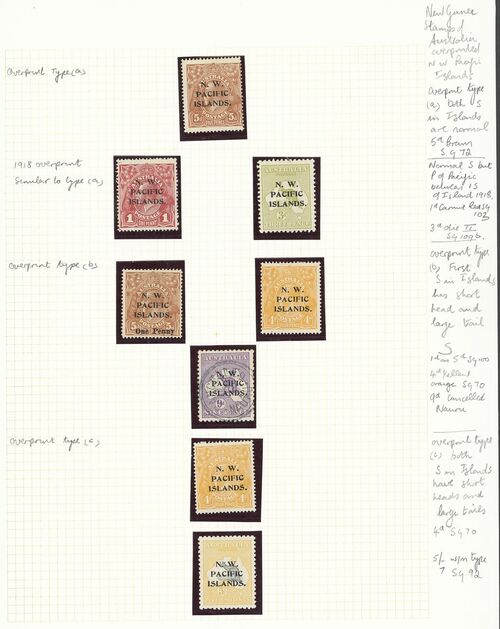 Overprint Type (a)
N. W.
PACIFIC
ISLANDS.
5d
5d
1918 overprint
Similar to type (a)
N. W.
PACIFIC
ISLANDS.
1
1
ONE PENNY
N. W.
PACIFIC
ISLANDS.
overprint type (b)
N. W.
PACIFIC
ISLANDS.
One Penny
N. W.
PACIFIC
ISLANDS.
AUSTRALIA
N. W.
PACIFIC
ISLANDS.
overprint type (c)
N. W.
PACIFIC
ISLANDS.
N. W.
PACIFIC
ISLANDS.
New Guinea
Stamps of
Australia
overprinted
N W Pacific
Islands
overprint type
(a) both S
in Islands
are normal
5d Brown
SG 72
Normal S but
P of Pacific
1S
of Island 1918.
1d Red SG
103
3d die II
SG 109b.
overprint type
(b) First
S in Islands
has short
head and
large tail
S
1d on 5d SG 100
4d Yellow
orange SG 70
9d cancelled
Nauru
overprint type
(c) both
S in Islands
have short
heads and
large tails
4d SG 70
5/- type
? SG 92